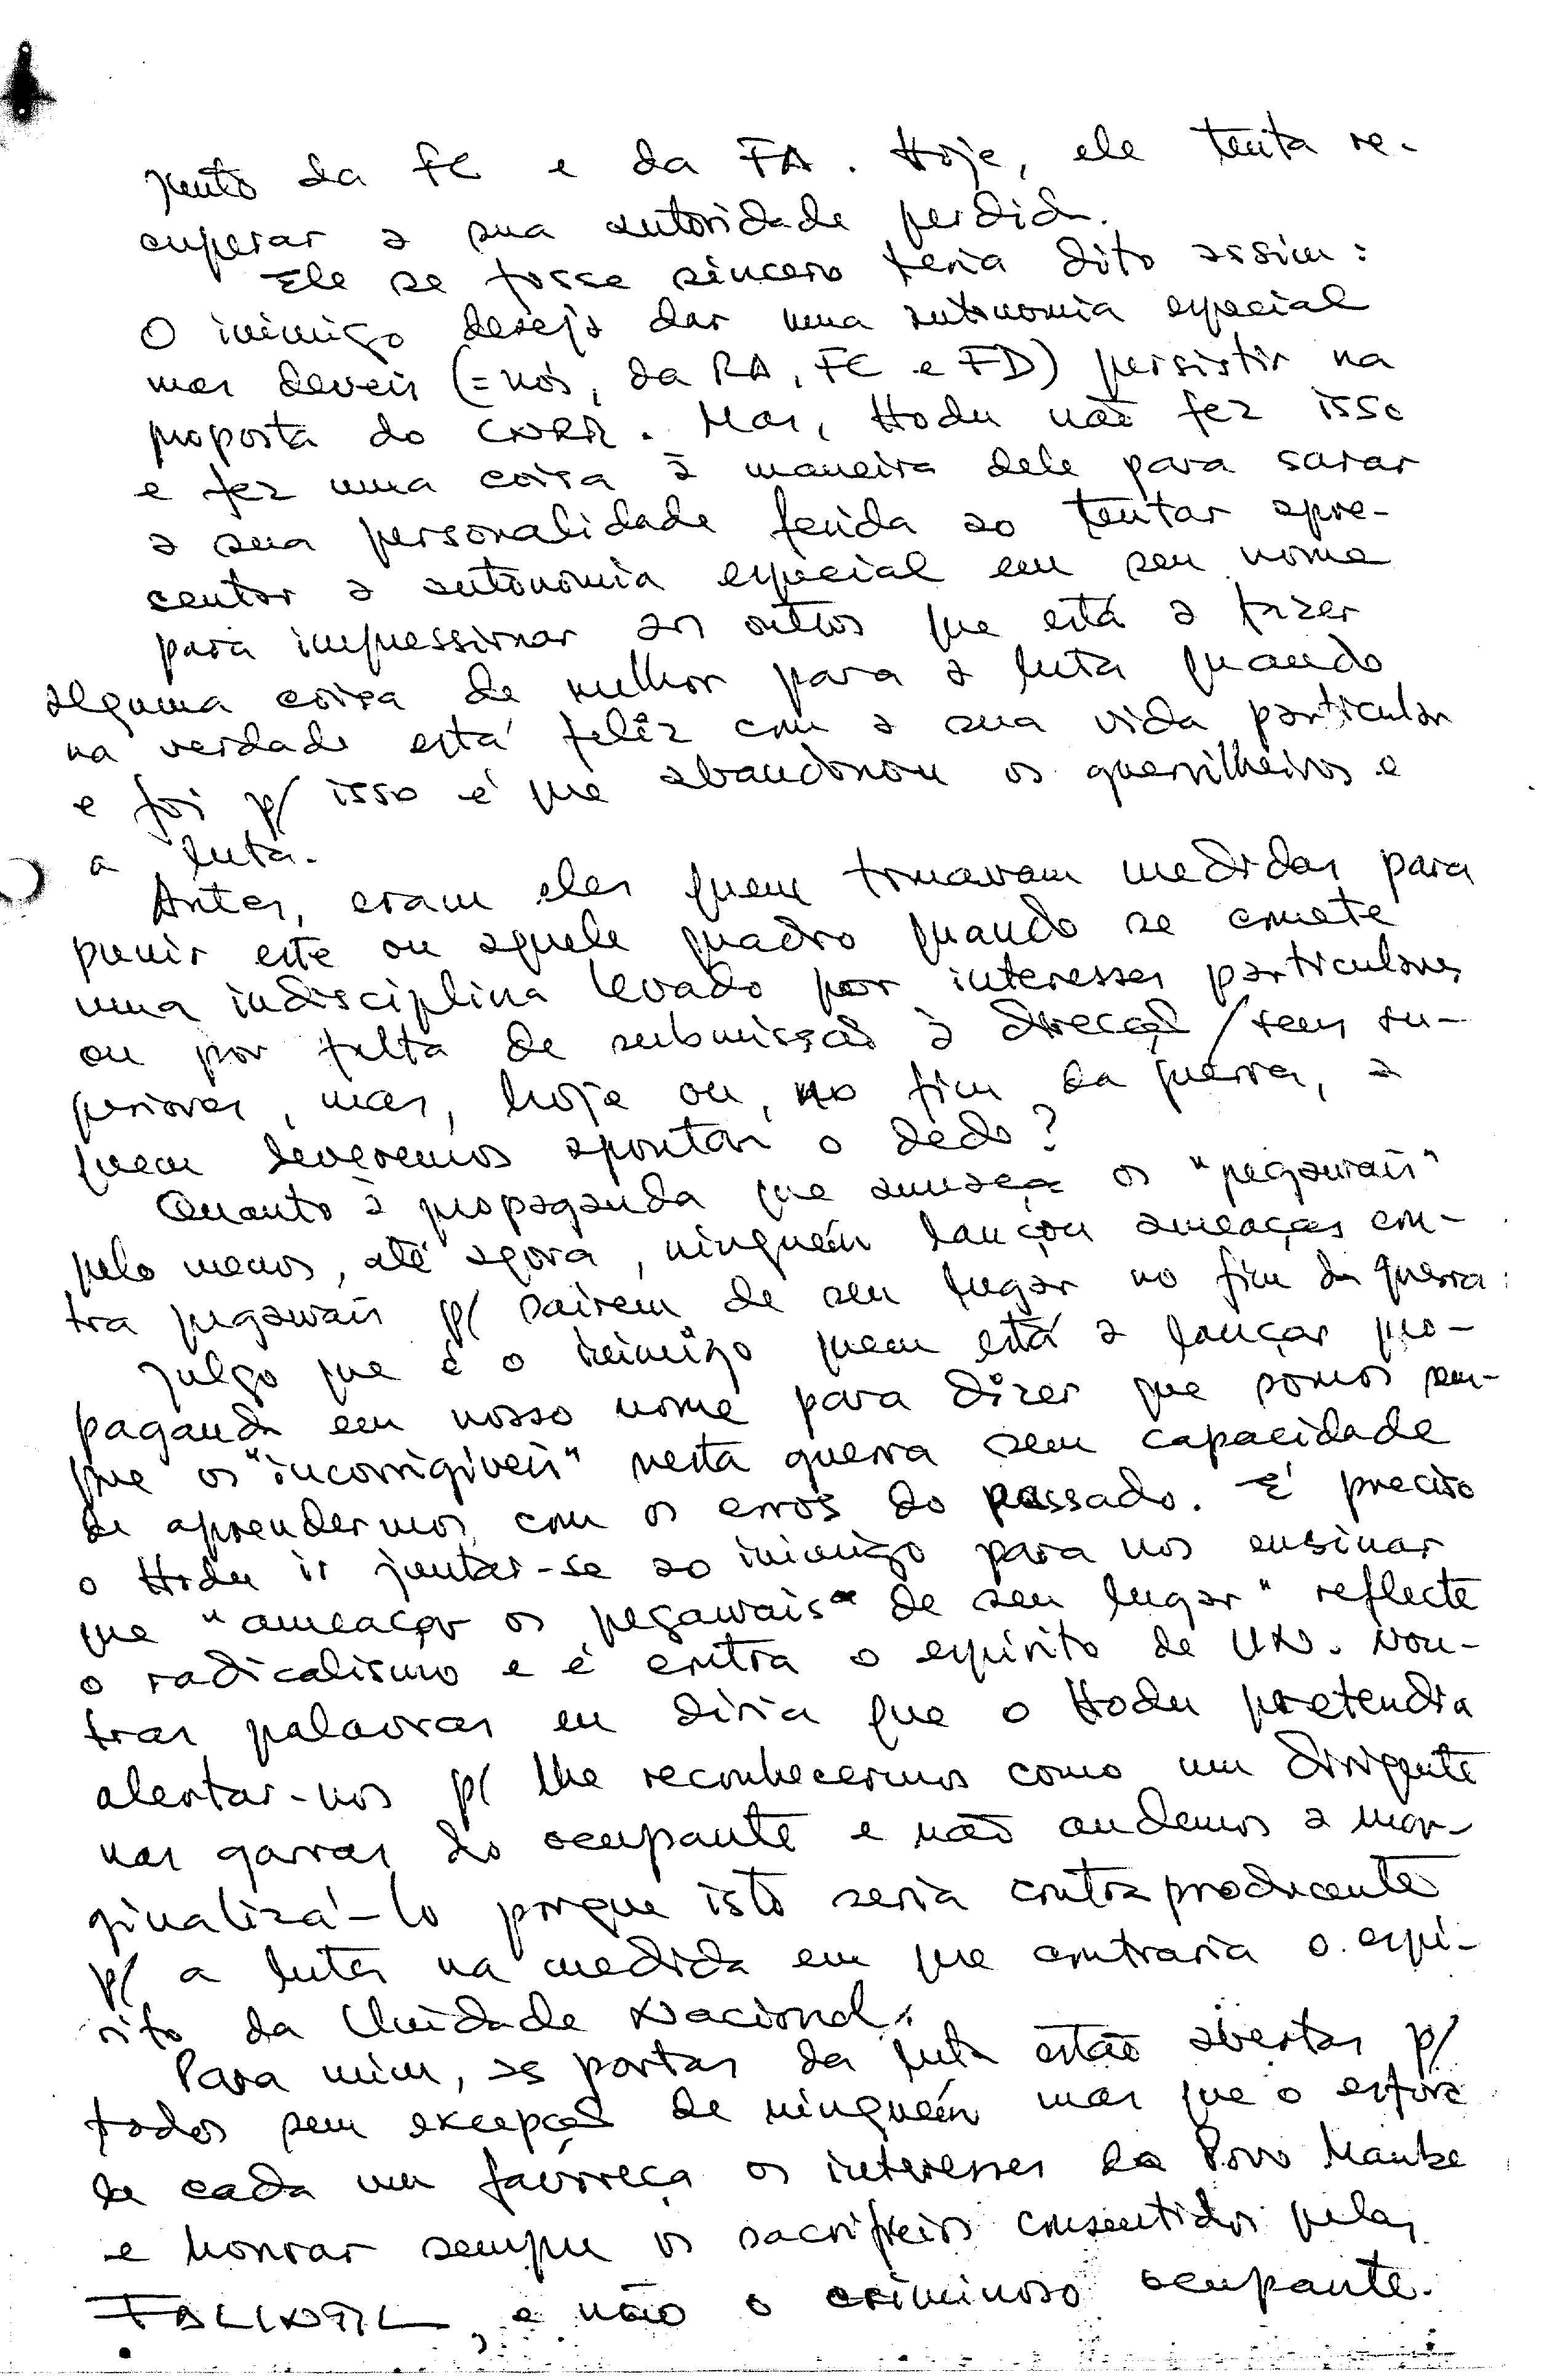 junto da FC e da FA. Hoje, ele tenta re-
cuperar a sua autoridade perdida.
Ele se fosse sincero teria dito assim:
O inimigo deseja dar uma autonomia especial
mas deveis (= nós, da RA, FC e FD) persistir na
proposta do CNRM. Mas, Hodu não fez isso
e fez uma coisa à maneira dele para sarar
a sua personalidade ferida ao tentar apre-
sentar a autonomia especial em seu nome
para impressionar aos outros que está a fazer
alguma coisa de melhor para a luta quando
na verdade está felîz com a sua vida particular
e foi p/ isso é que abandonou os guerrilheiros e
a luta.
Antes, eram eles quem tomavam medidas para
punir este ou aquele quadro quando se comete
uma indisciplina levado por interesses particulares
ou por falta de submissão à direcção/seus su-
periores, mas, hoje ou, no fim da guerra, a
quem deveremos apontar o dedo?
Quanto à propaganda que ameaça os "pegawais"
pelo menos, até agora, ninguém lançou ameaças con-
tra pegawais p/ sairem de seu lugar no fim da guerra.
Julgo que é o inimigo quem está a lançar pro-
paganda em nosso nome para dizer que somos sem-
pre os "incorrigíveis" nesta guerra sem capacidade
de aprendermos com os erros do passado. É preciso
o Hodu ir juntar-se ao inimigo para nos ensinar
que "ameaçar os pegawais de seu lugar" reflecte
o radicalismo e é contra o espírito de UN. Nou-
tras palavras eu diria que o Hodu pretendia
alertar-nos p/ lhe reconhecermos como um dirigente
nas garras do ocupante e não andemos a mar-
ginalizá-lo porque isto seria contraproducente
p/ a luta na medida em que contraria o espí-
rito da Unidade Nacional.
Para mim, as portas da luta estão abertas p/
todos sem excepção de ninguém mas que o esforço
de cada um favoreça os interesses do Povo Maubere
e honrar sempre os sacrifícios consentidos pelas
FALINTIL, e não o criminoso ocupante.